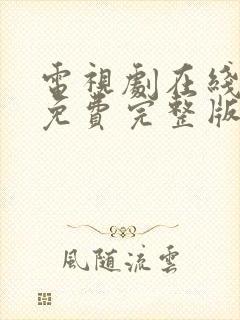 電視劇在綫
免費完整版
風随流雲